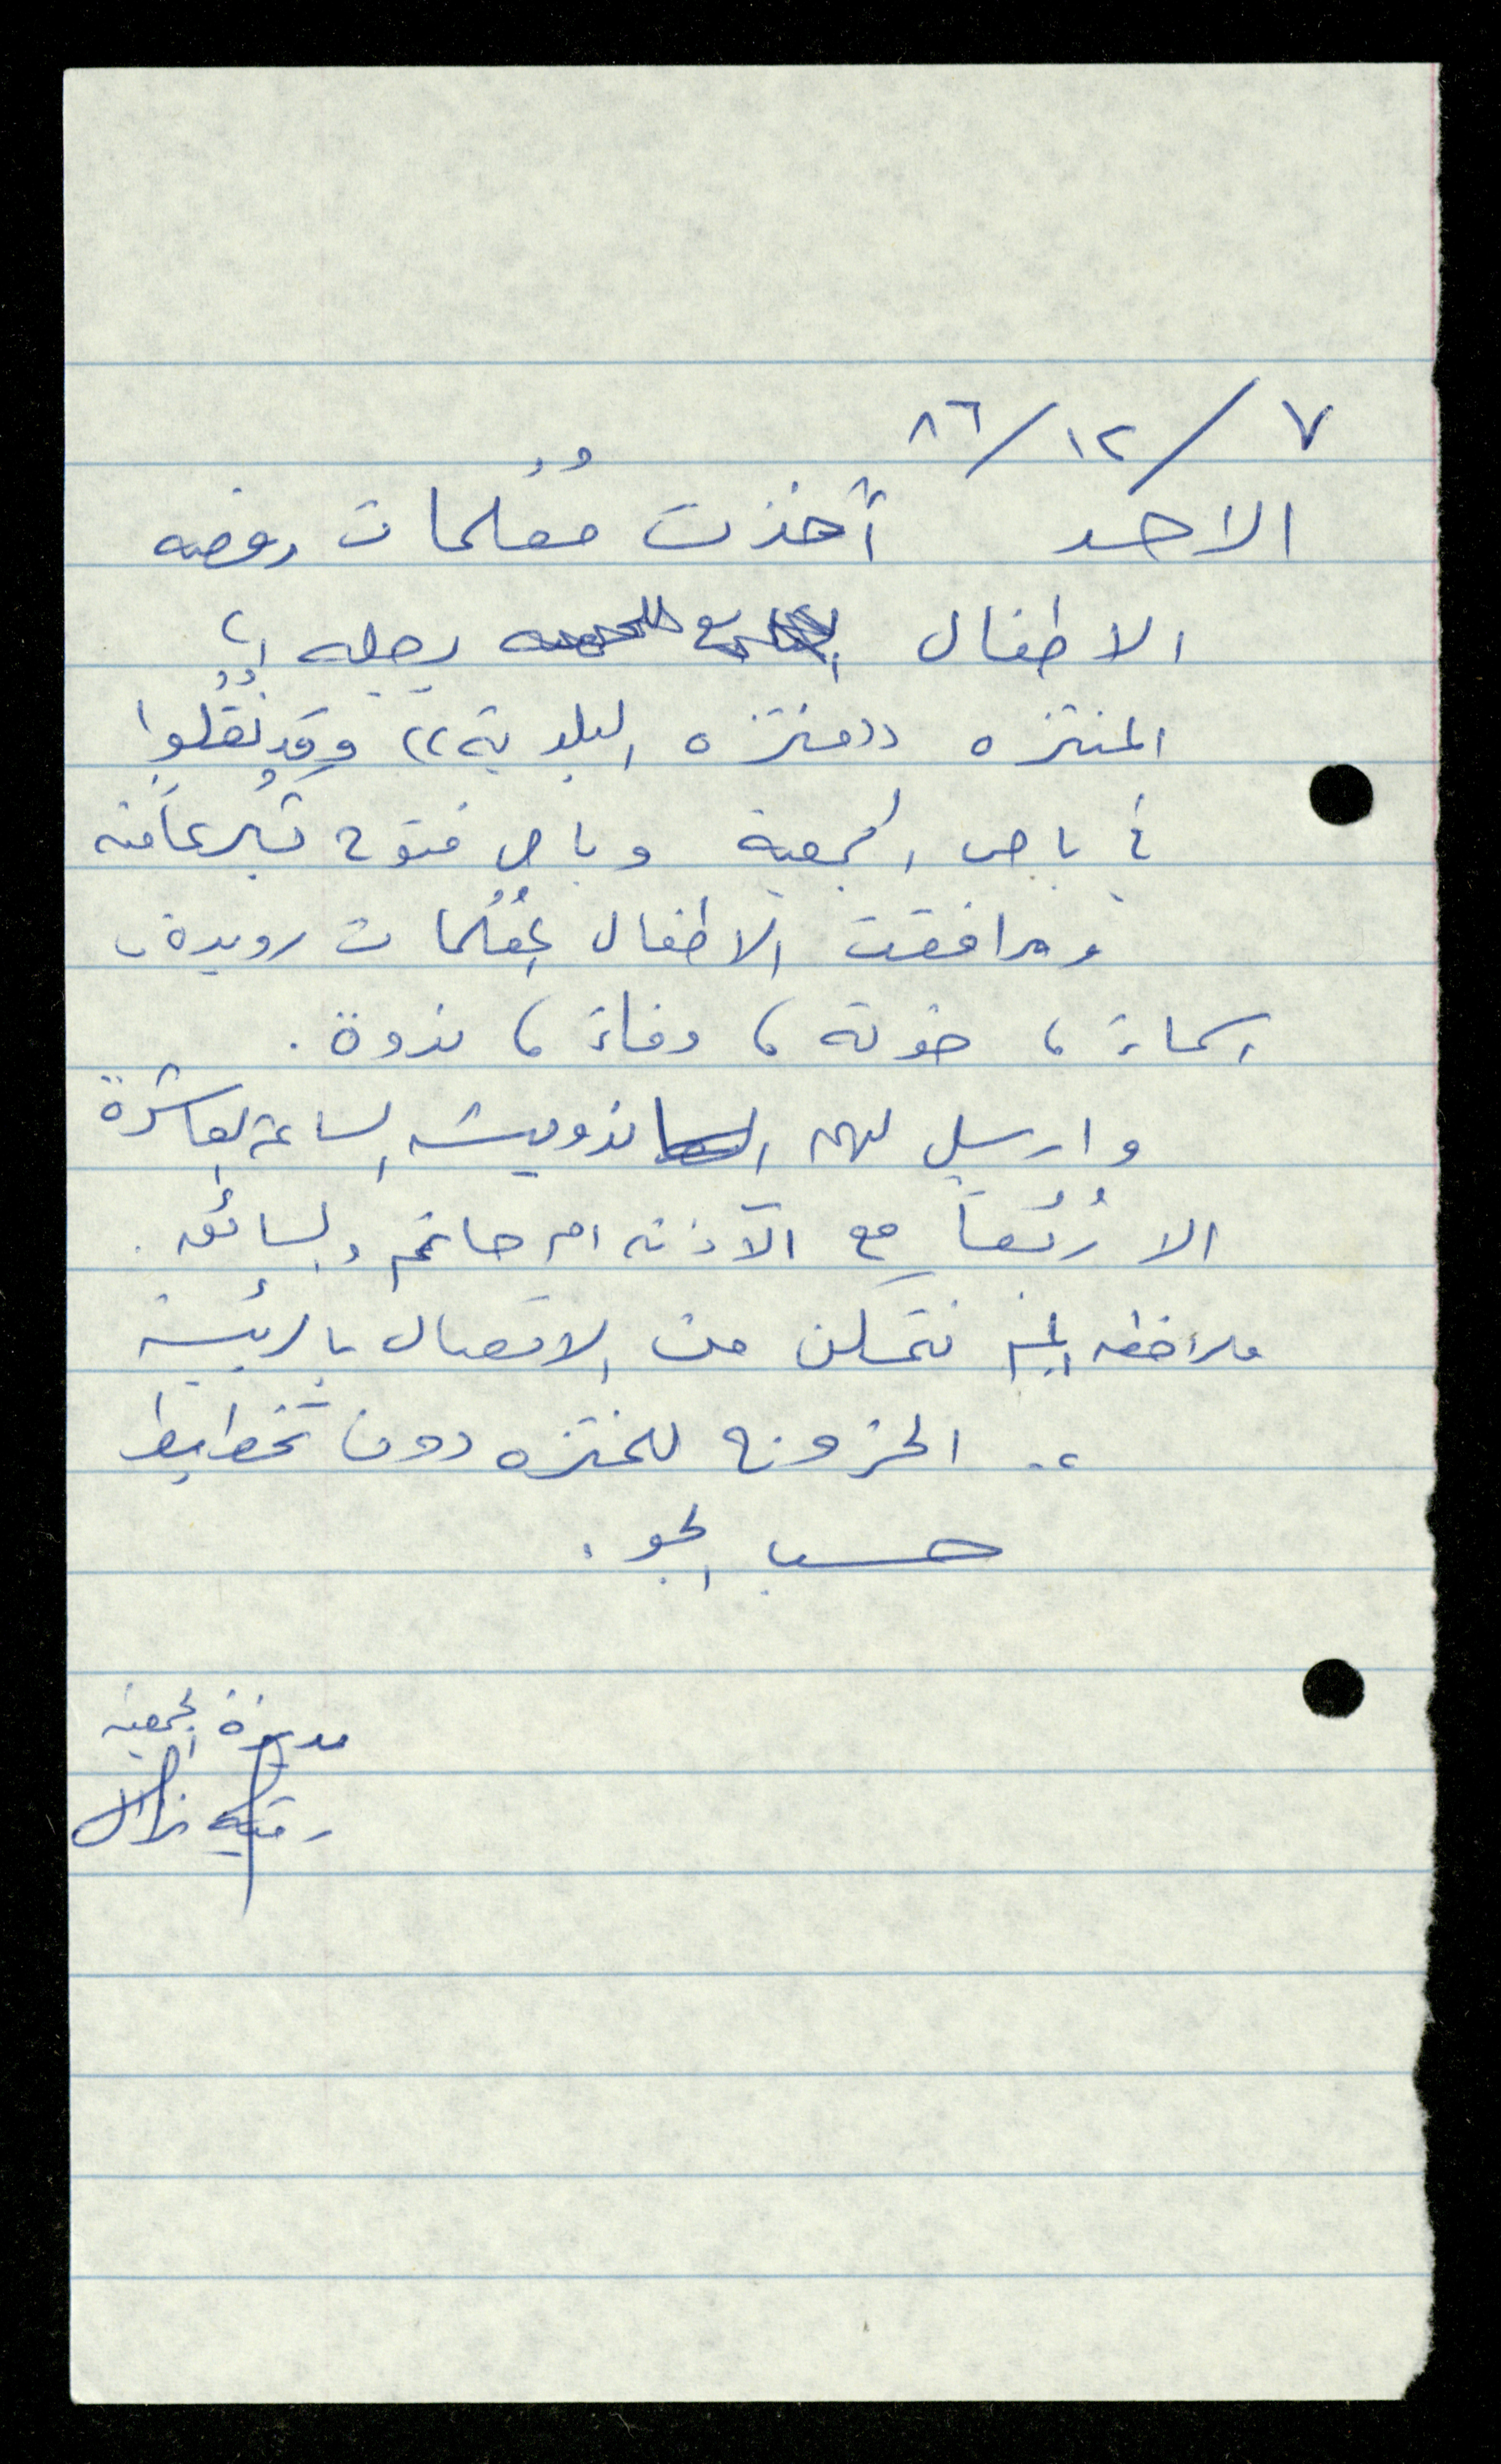 ٧/١٢/٨٦
الاحد أخذت معلمات روضه
الاطفال رحله إلى
المنتزه ((منتزه البلدية)) وقد نُقلوا
في باص الجمعية وباص فتوح تبرعاً منه
ورافقت الاطفال المعلمات رويدة،
اسماء، خولة، وفاء، ندوة.
وارسل لهم الساندويش الساعة العاشرة
الا رُبعاً مع الآذنه ام حاتم والسائق.
ملاحظه لم نتمكن من الاتصال بالرئيسة
.. الخروج للمنتزه دون تخطيط
حسب الجو.
مديرة الجمعيه
رقيه نزال